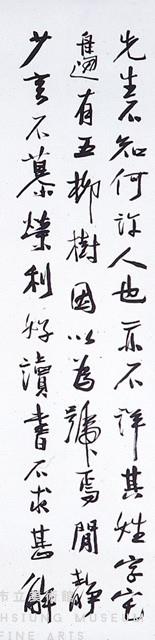 先生不知何許人也亦不詳其姓字宅
邊有五柳樹因以為號焉閒靜
少言不慕榮利好讀書不求甚解
市立美術館
HSIUNG MUSEUM
FINE ARTS